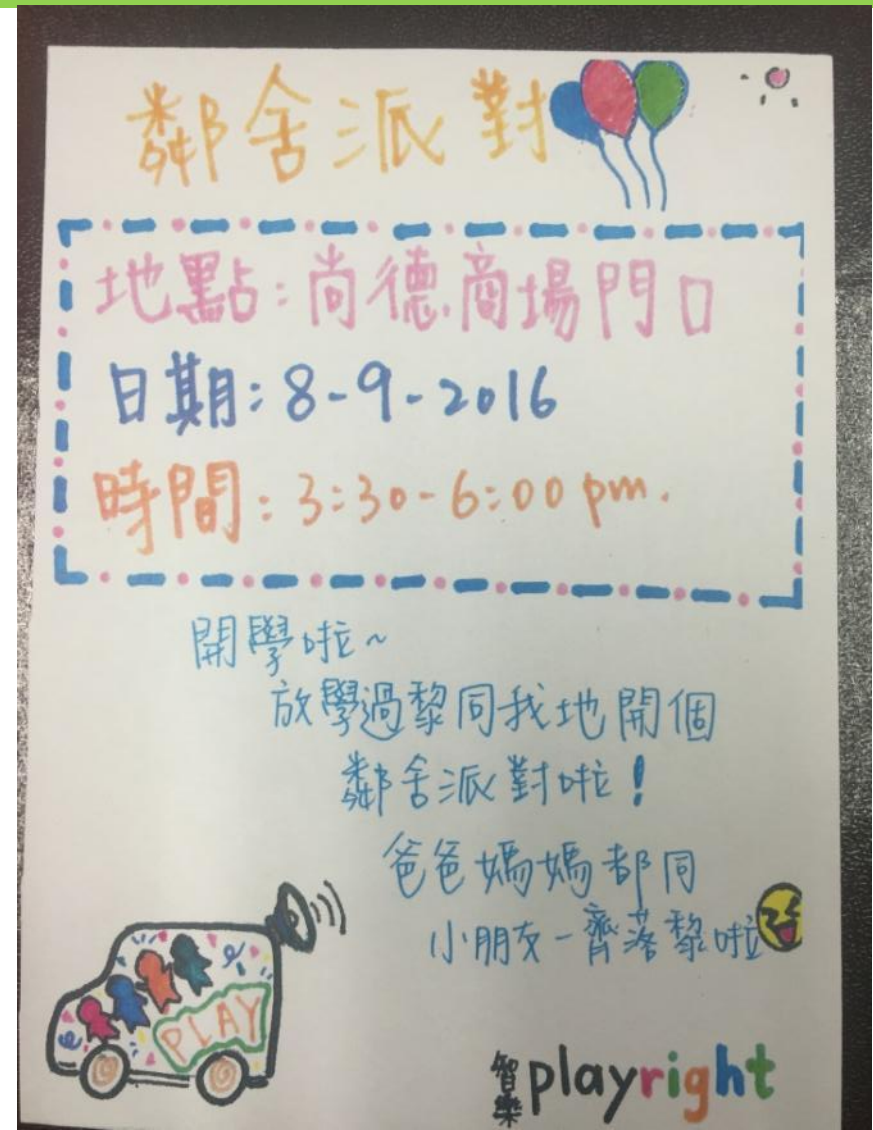 鄰舍派對
地點：尚德商場門口
日期：8-9-2016
時間：3:30-6:00 pm.
開學啦~
放學過黎同我地開個
鄰舍派對啦！
爸爸媽媽都同
小朋友一齊落黎啦
PLAY
智樂 playright